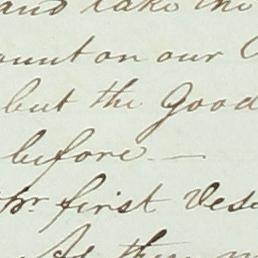 and take the
ount on our
but the Good
before —
pr first Vess
As they